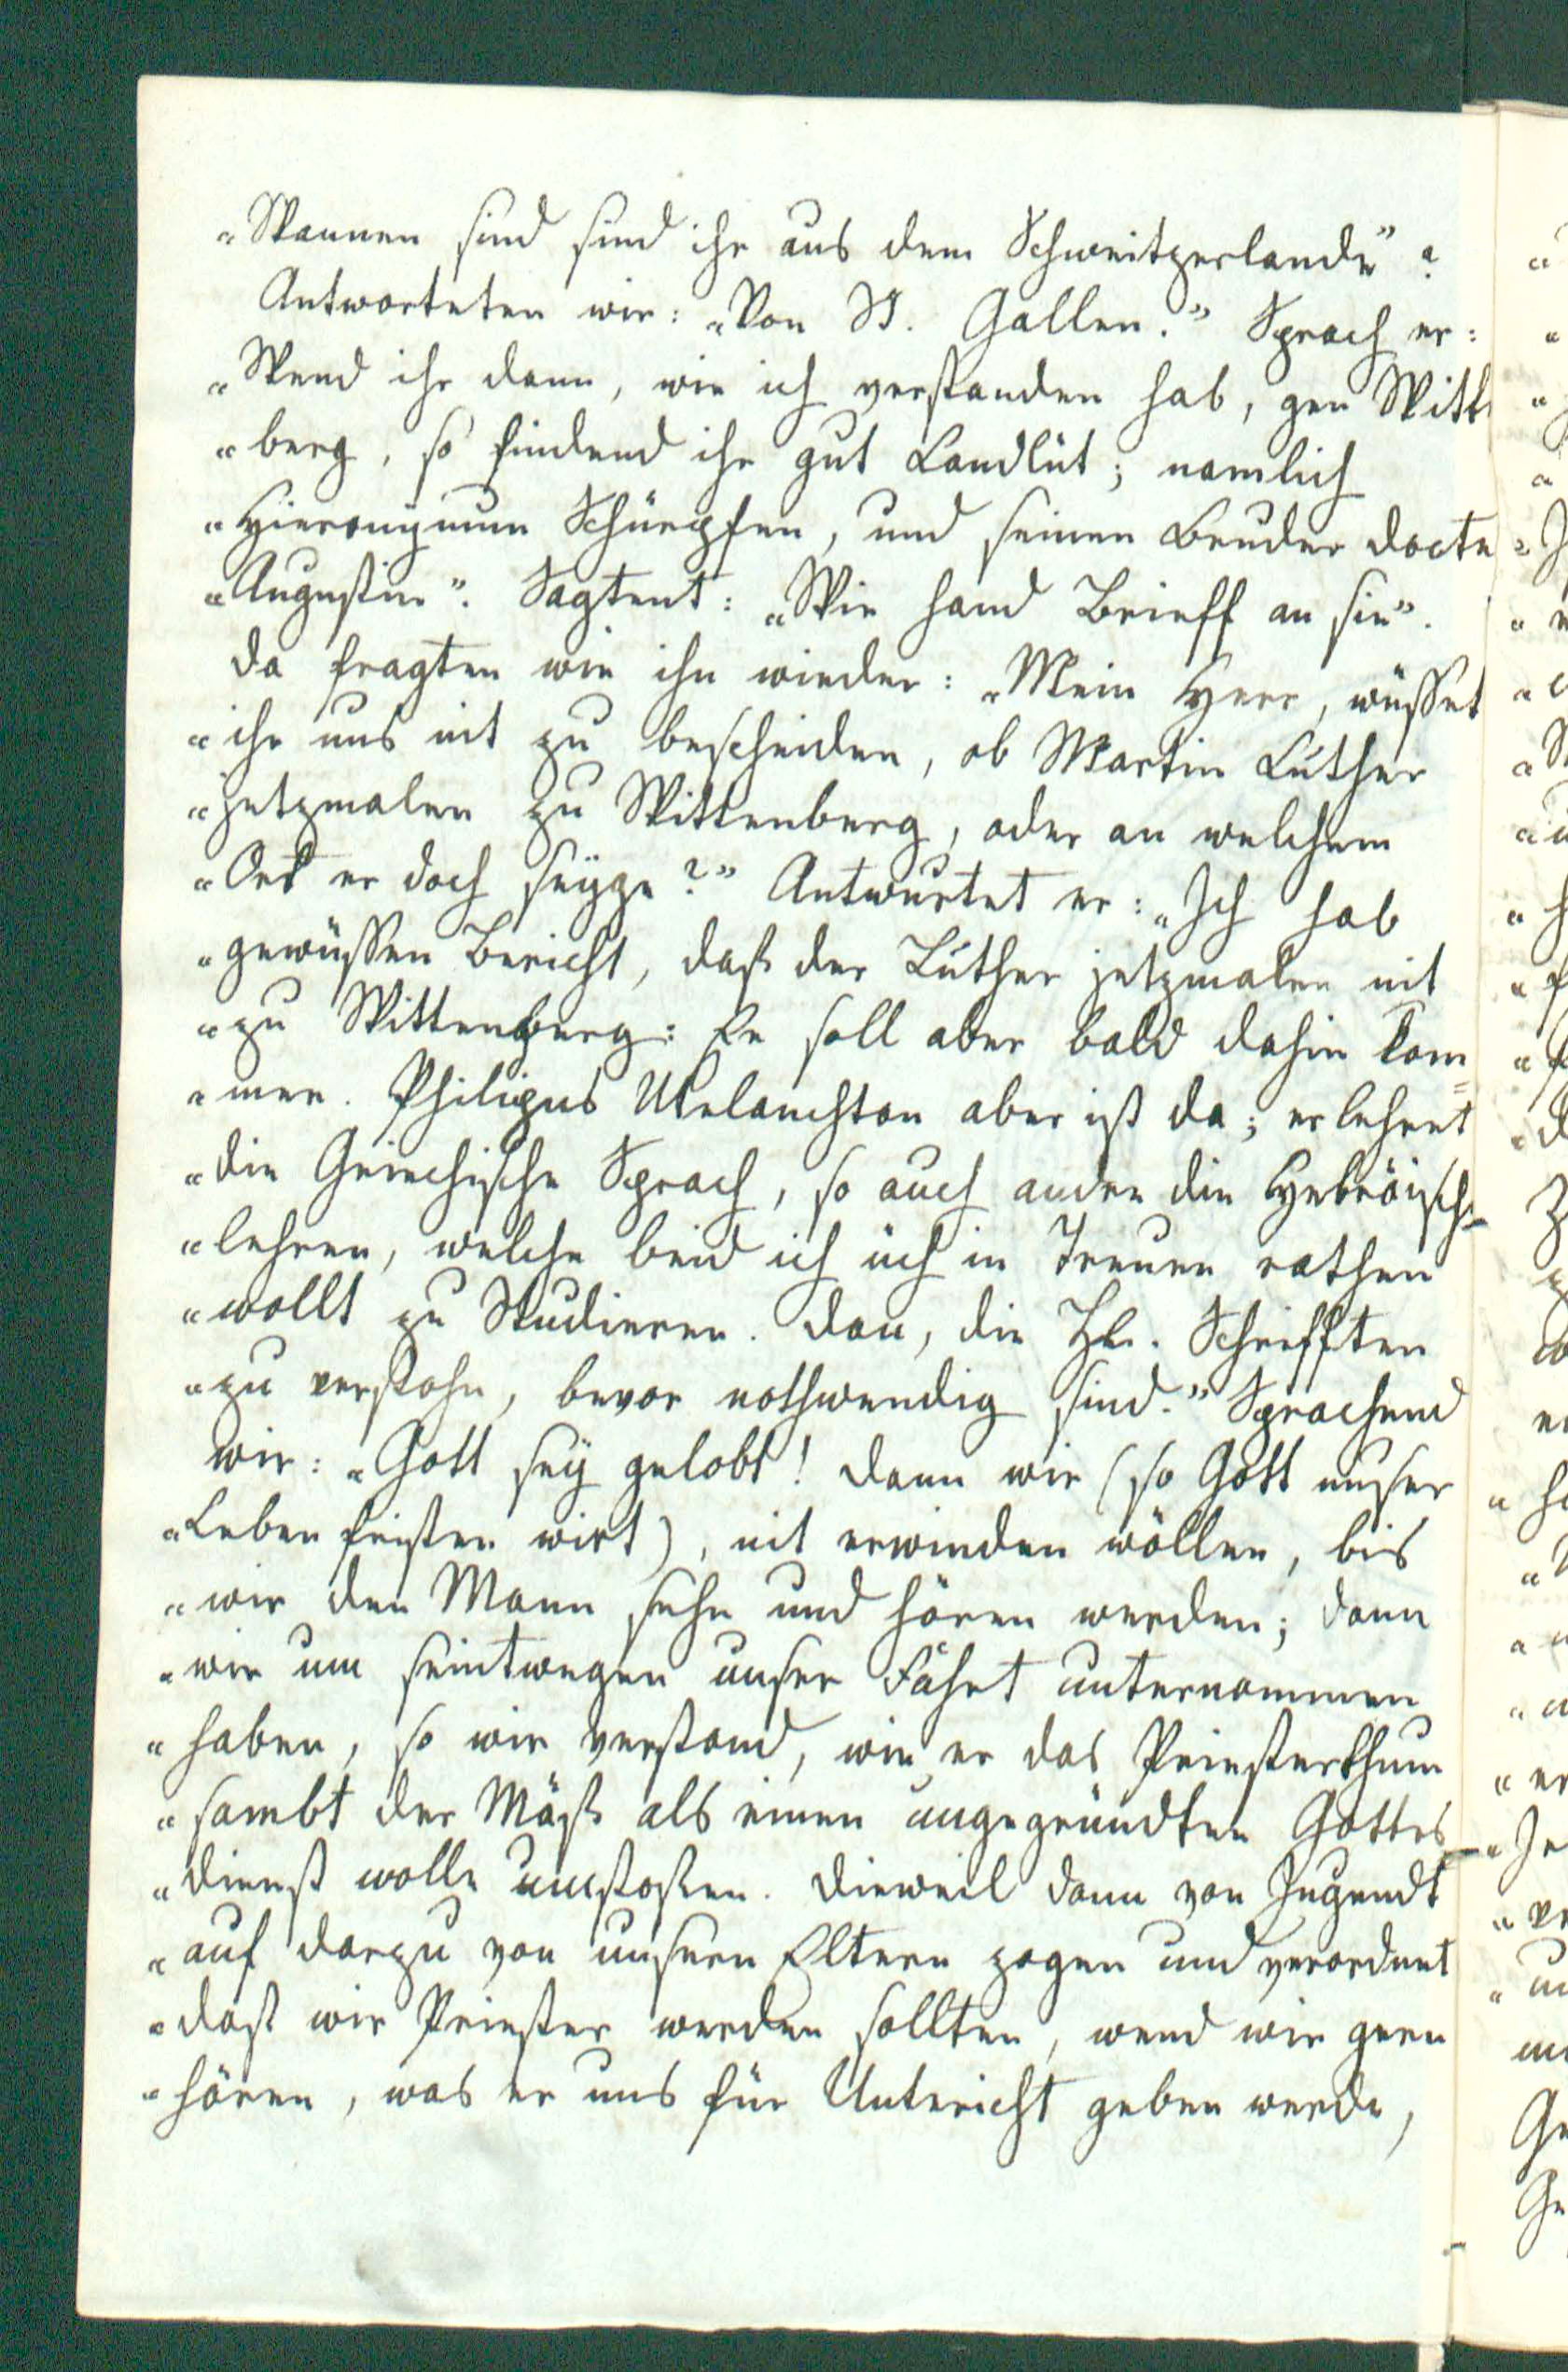 „Wannen sind sind ihr aus dem Schweitzerlande“?
Antworteten wir: „Von St. Gallen.“ Sprach er:
„Wend ihr dann, wie ich verstanden hab, gen Witt
„berg, so findend ihr gut Landlüt; namlich
„Hieronymum Schürpfen, und seinen Bruder Docte
„Augustin“. Sagtent: „Wir hand Brieff an sie“.
Da fragten wir ihn wieder: „Mein Herr, wüsset
„ihr uns nit zu bescheiden, ob Martin Luther
„jetzmalen zu Wittenberg, oder an welchem
„Ort er doch seÿge?“ Antwurtet er: „Ich hab
„gewüssen Bericht, daß der Luther jetzmalen nit
„zu Wittenberg: Er soll aber bald dahin kom
„men. Philipus Melanchton aber ist da; er lehret
„die Griechische Sprach, so auch andre die Hebröisch
„lehren, welche beid ich üch in Treuen rathen
„wollt zu Studieren. Dan, die Hl. Schrifften
„zu verstohn, bevor nothwendig sind.“ Sprachend
wir: „Gott seÿ gelobt! Dann wir (so Gott unser
„Leben fristen wirt), nit erwinden wöllen, bis
„wir den Mann sehn und hören werden; dann
„wir um seintwegen unser Fahrt unternommen
„haben, so wir verstand, wie er das Priesterthum
„sambt der Mäß als einen ungegründten Gottes
„dienst wolle umstoßen. Dieweil dann von Jugendt
„auf darzu von unsern Eltern zogen und verordnet
„daß wir Priester werden sollten, wend wir gern
„hören, was er uns für Untericht geben werde,